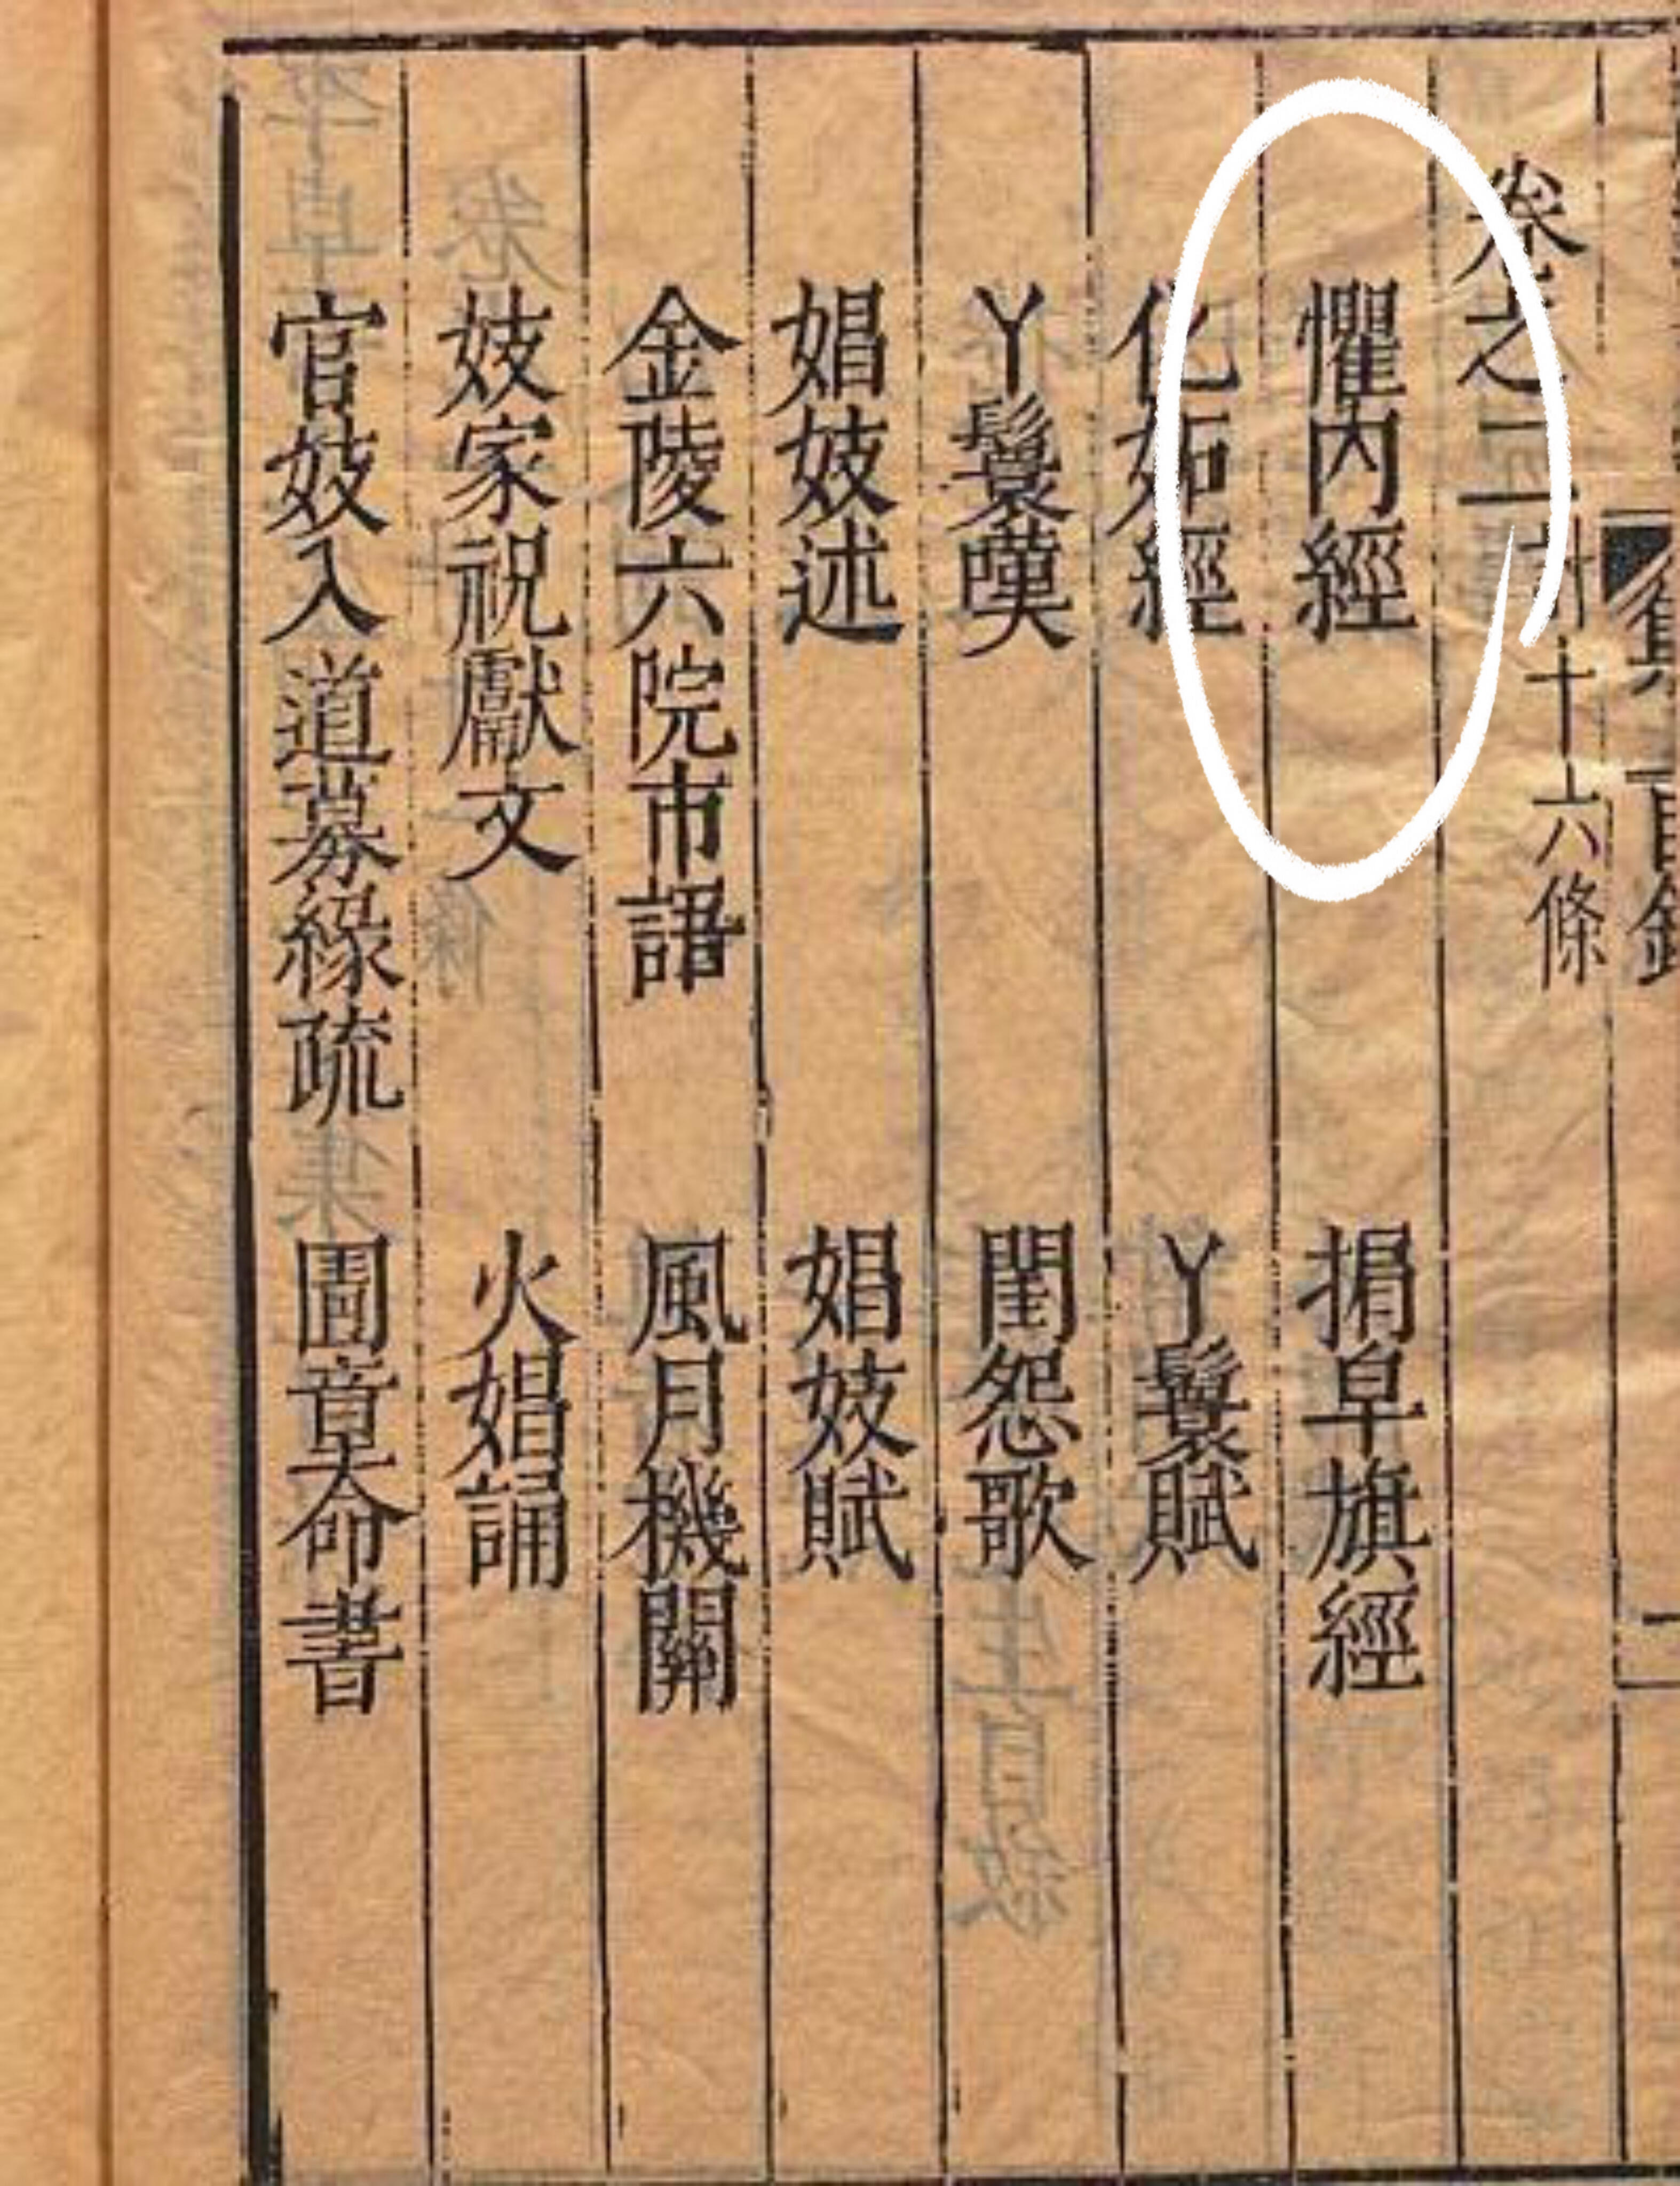 集 目錄
二
卷之五
計十六條
懼內經 捐皁旗經
化妬經 丫鬟賦
丫鬟嘆 閨怨歌
娼妓述 娼妓賦
金陵六院市語 風月機關
妓家祝獻文 火娼誦
官妓入道募緣疏 圊童命書